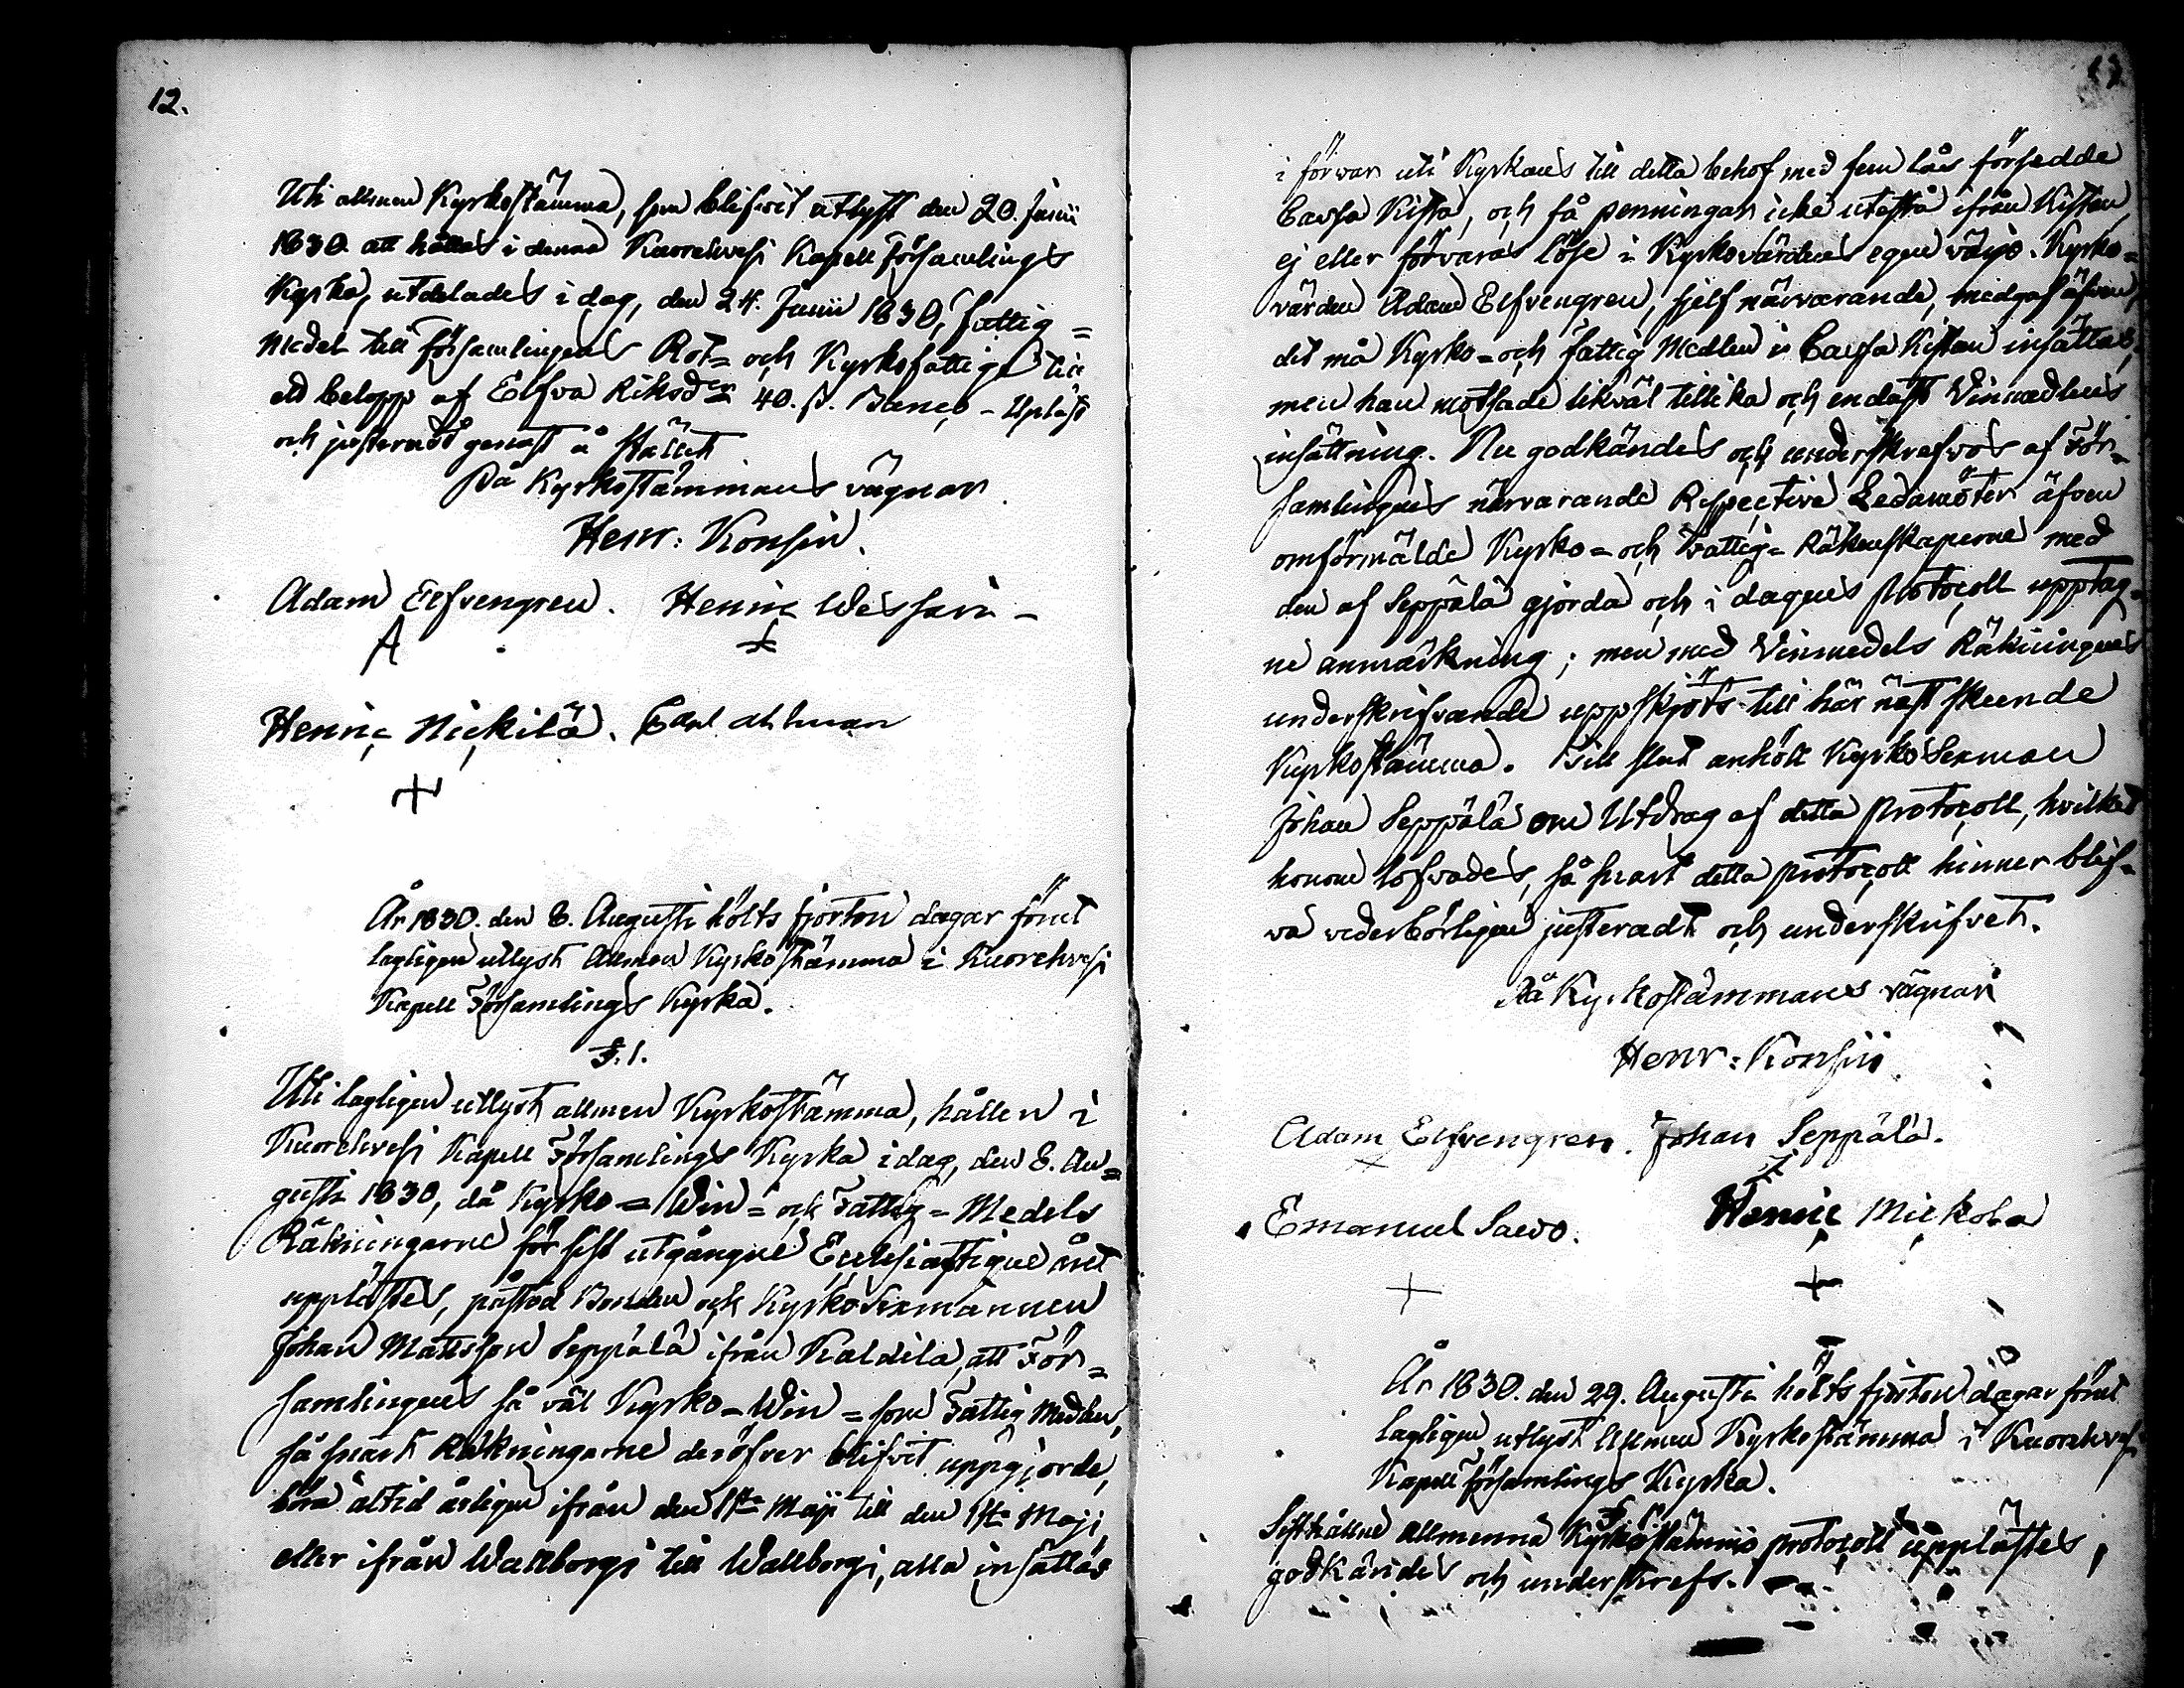 12.
Uti allmen Kyrkostämma, som blifvit utlyst den 20. Junii
1830. att hållas i denna Kuorehvesi Kapell Församlings
Kyrka, utdelades i dag, den 24. Junii 1830, fattig=
medel till församlingens Rot= och Kyrkofattige till
ett belopp af Elfva Riksd:r 40. ß. Banco - Upläst
och justeradt genast å Stället
På Kyrkostämmans vägnar
Henr: Konsin.
Adam Elfvengren. Henric Wessari -
A +
Henric Nickilä. Carl Ahlman
+
År 1830. den 8. Augusti hölts fjorton dagar förut
lagligen utlyst Allmen Kyrkostämma i Kuorehvesi
Kapell Församlings Kyrka.
§. 1.
Uti lagligen utlyst allmen Kyrkostämma, hållen i
Kuorehvesi Kapell Församlings Kyrka i dag, den 8. Au=
gusti 1830, då Kyrko= Win= och Fattig= Medels
Räkningarne för sist utgångne Ecclesiastique året
upplästes, påstod Bonden och Kyrko Sexmannen
Johan Mattsson Seppälä ifrån Kaldila, att För=
samlingens så väl Kyrko= Win= som Fattig Medlen,
så snart Räkningarne deröfver blifvit uppgjorde,
böra altid årligen ifrån den 1sta Maji till den 1sta Maji,
eller ifrån Wallborgi till Wallborgi, alla insättas
i förvar uti Kyrkans till detta behof med fem lås försedde
Cassa Kista, och få penningar icke utestå ifrån Kistan
ej eller förvaras löse i Kyrkovärdens egen värjo. Kyrko=
värden Adam Elfvengren, sjelf närvarande, medgaf äfven,
det må Kyrko= och fattig Medlen i Cassa Kistan insättas,
men han motsade likväl tillika och endast Vinmedlens
insättning. Nu godkändes och underskrefvos af För=
samlingens närvarande Respective Ledamöter äfven
omförmälde Kyrko= och Fattig= Räkenskaperne med
den af Seppälä gjorda och i dagens Protocoll upptag=
ne anmärkning; men med Vinmedels Räkningens
underskrifvande uppskjöts till här näst skeende
Kyrkostämma. Till slut anhöll Kyrko Sexman
Johan Seppälä om Utdrag af detta Protocoll, hvilket
honom lofvades, så snart detta protocoll hinner blif=
va vederbörligen justeradt och underskrifvet.
På Kyrkostämmans vägnar
Henr: Konsin
Adam Elfvengren. Johan Seppälä.
Emanuel Saevo. Henric Mickola
+ +
År 1830. den 29. Augusti hölts fjorton dagar förut
lagligen utlyst Allmen Kyrkostämma i Kuorehvesi
Kapell församlings Kyrka.
§. 1.
Sisthållne allmenna Kyrkostämmo protocoll upplästes,
godkändes och underskrefs.